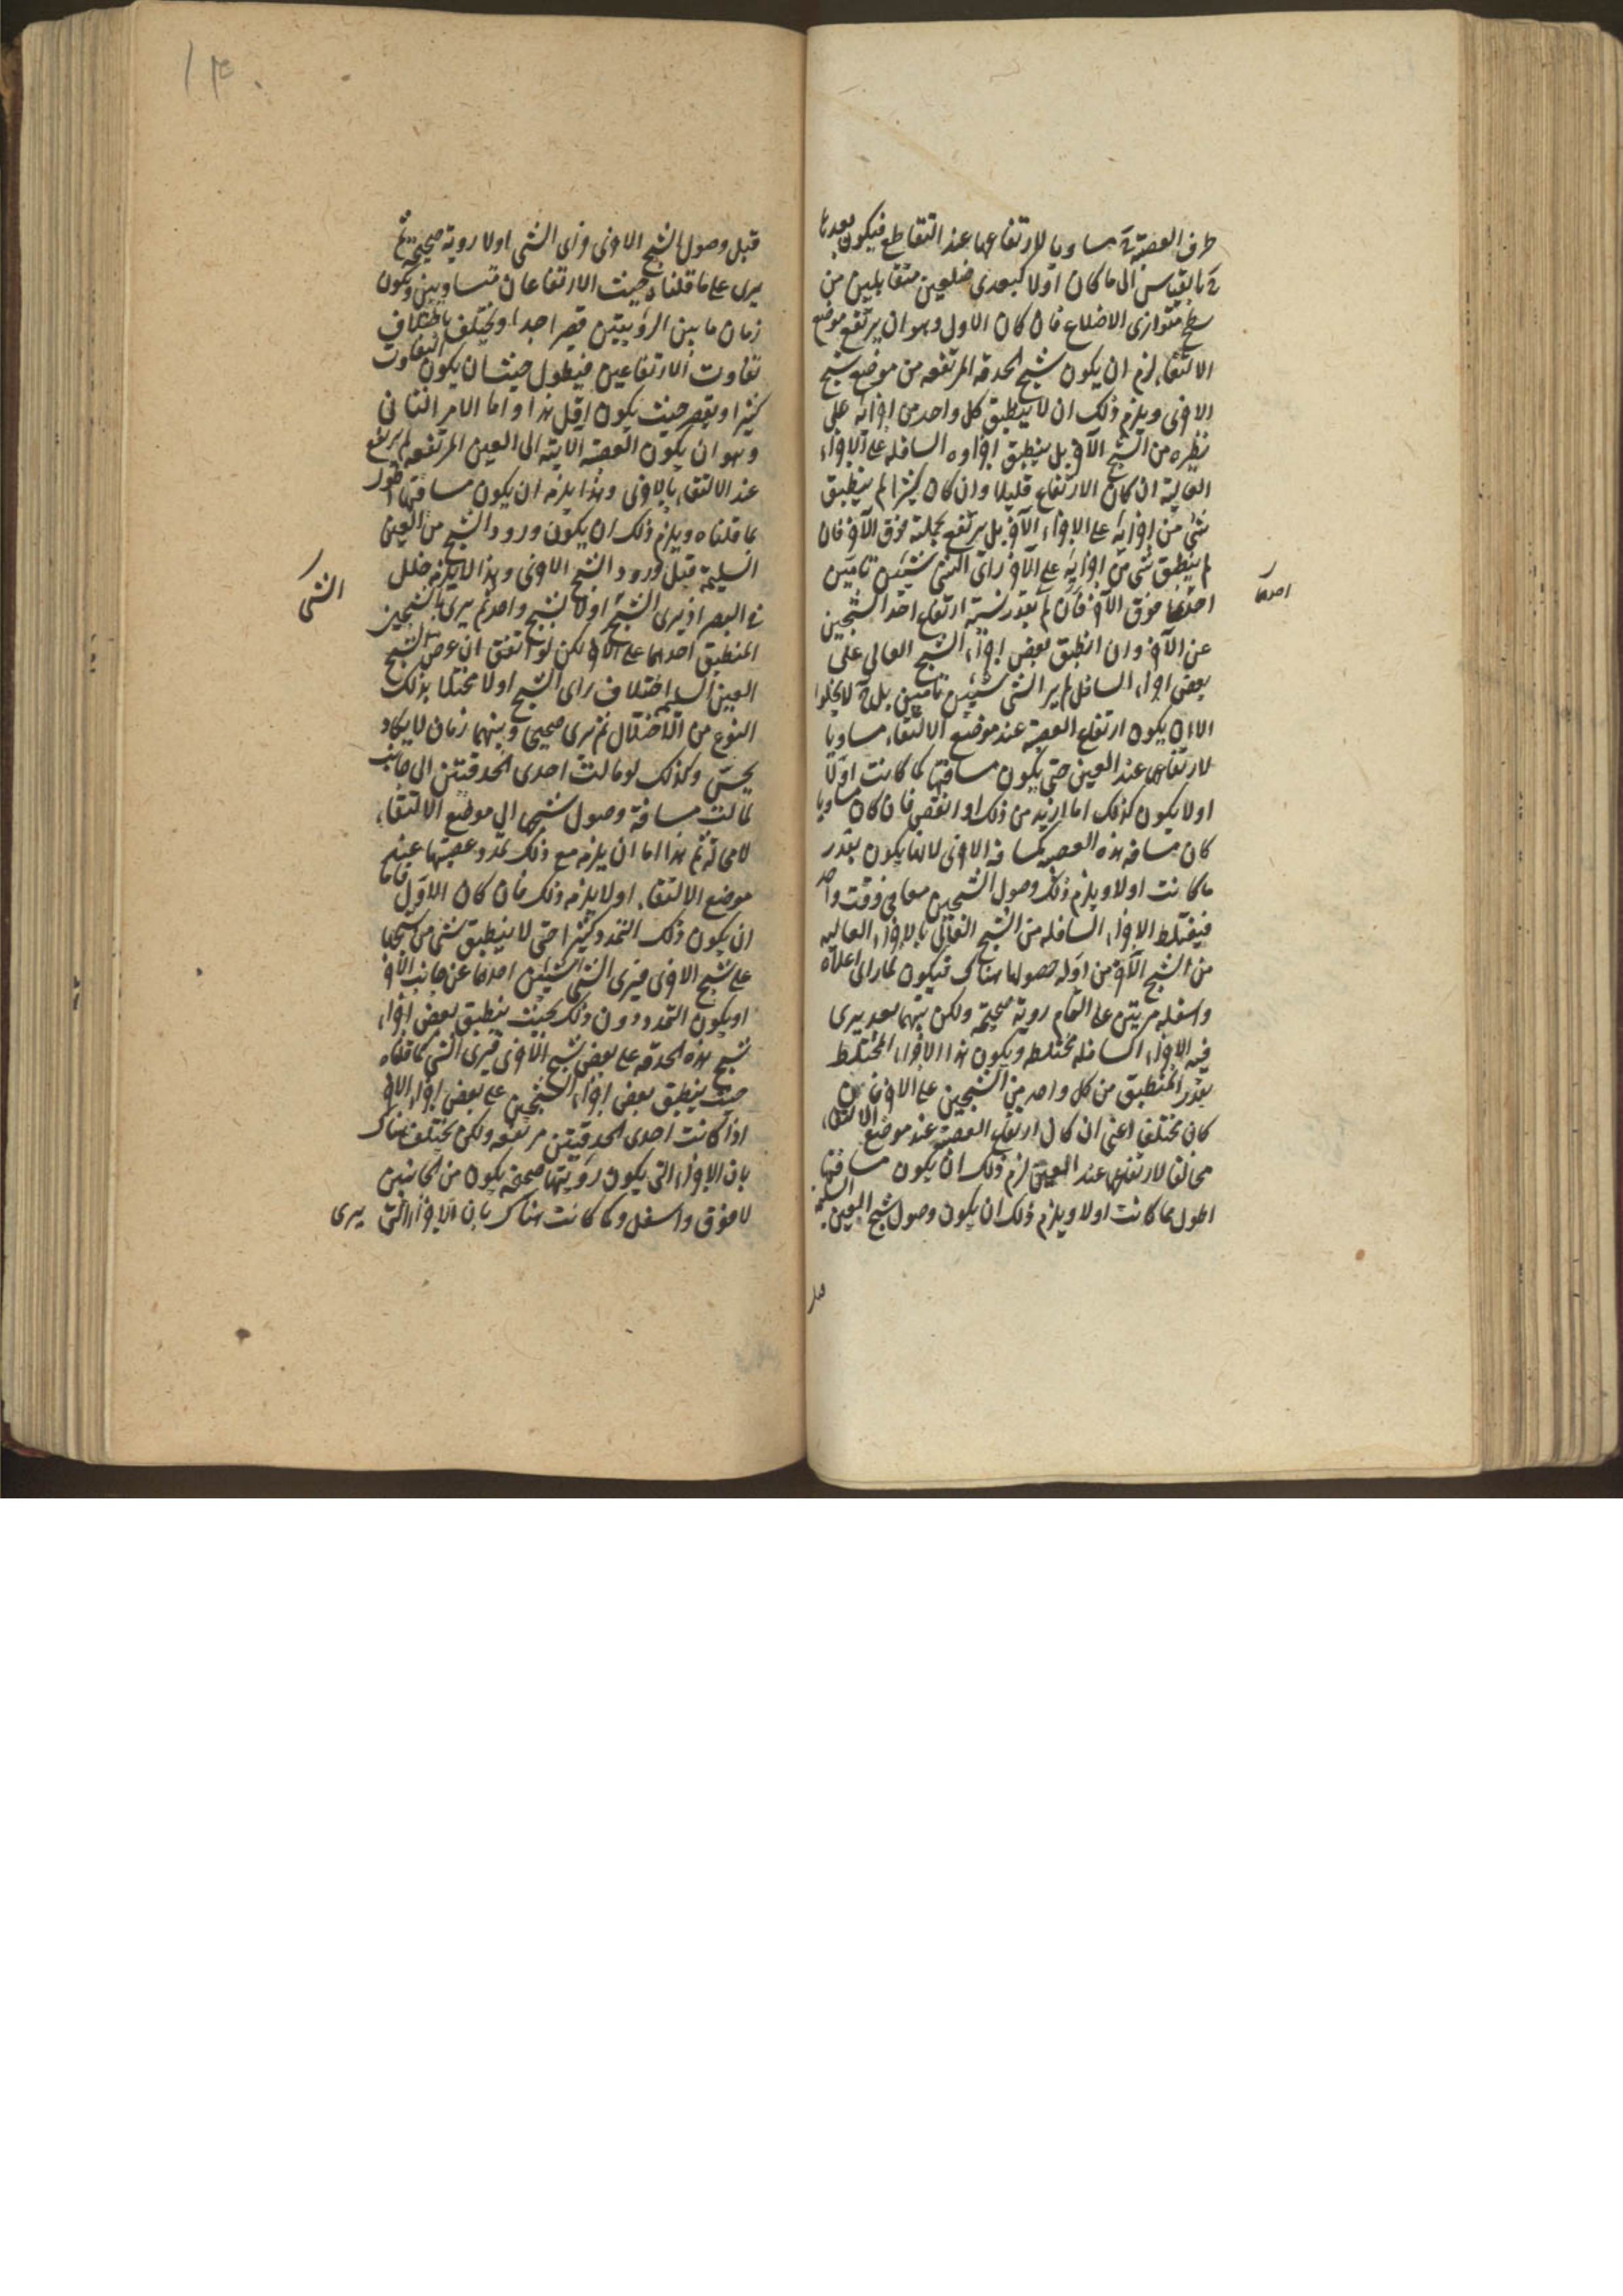 طرف العصبة ح مساويا لارتفاعها عند التقاطع فيكون بعدها
ح بالقياس الى ما كان اولا كبعدى ضلعين متقابلين من
سطح متوازى الاضلاع فان كان الاول وهو ان يرتفع موضع
الالتقاء لزم ان يكون شبح الحدقه المرتفعه من موضع شبح
الاخرى ويلزم ذلك ان لا ينطبق كل واحد من اجزائه على
نظيره من الشبح الآخر بل ينطبق اجزاوه السافله على الاجزاء
العالية ان كان الارتفاع قليلا وان كان كثيرا لم ينطبق
شئ من اجزائه على الاجزاء الآخر بل يرتفع بجملته فوق الآخر فان
لم ينطبق شئ من اجزائه على الآخر راى الشئ شيئين تامين
احدهما فوق الآخر بقدر نسبة ارتفاع احد الشبحين
احدهما
عن الآخر وان انطبق بعض اجزاء الشبح العالى على
بعض اجزاء السافل لم ير الشئ شيئين تامين بل ح لا يخلوا
الا ان يكون ارتفاع العصبة عند موضع الالتقاء مساويا
لارتفاعها عند العين حتى يكون مسافتها كما كانت اولا
اولا يكون كذلك اما ازيد من ذلك او انقص فان كان مساويا
كان مسافه هذه العصبه كمسافه الاخرى لانها يكون بقدر
ما كانت اولا ويلزم ذلك وصول الشبحين معا فى وقت واحد
فيختلط الاجزاء السافله من الشبح العالى بالاجزاء العاليه
من الشبح الآخر من اول حصولها هناك فيكون لما راى اعلاه
واسفله مرئيين على التمام روية صحيحة ولكن بينهما بعد يرى
فيه الاجزاء السافله مختلطه ويكون هذا الاجزاء المختلط
بقدر المنطبق من كل واحد من الشبحين على الاخر فان
كان مختلفا اعنى ان كان ارتفاع العصبة عند موضع الالتقاء
مخالفا لارتفاعها عند العين لزم ذلك ان يكون مسافتها
اطول مما كانت اولا ويلزم ذلك ان يكون وصول شبح العين السليمه
قبل وصول الشبح الاخرى وراى الشئ اولا روية صحيحة ثم
يرى على ما قلناه حيث الارتفاعان متساويين ويكون
زمان ما بين الرؤيتين قصيرا جدا ويختلف باختلاف
تفاوت الارتفاعين فيطول حيث ان يكون التفاوت
كثيرا ويقصر حيث يكون اقل هذا واما الامر الثانى
وهو ان يكون العصبة الاتيه الى العين المرتفعه لم يرتفع
عند الالتقاء بالاخرى وهذا يلزم ان يكون مسافتها اطول
مما قلناه ويلزم ذلك ان يكون ورود الشبح من العين
السليمة قبل ورود الشبح الاخرى وهذا لا يلزمه خلل
فى البصر اذ يرى الشبح اولا بشبح واحد ثم يرى بالشبحين
الشئ
المنطبق احدهما على الآخر لكن لو اتفق ان عرض لشبح
العين السليم اختلاف راى الشبح اولا مختلا بذلك
النوع من الاختلال ثم يرى صحيحى وبينهما زمان لا يكاد
يحس وكذلك لو مالت احدى الحدقيتن الى جانب
لمالت مسافة وصول شبحها الى موضع الالتقاء
لا محالة ثم هذا اما ان يلزم مع ذلك تمدد عصبتها عند
موضع الالتقاء اولا يلزم ذلك فان كان الاول فاما
ان يكون ذلك التمدد كثيرا حتى لا ينطبق شئ من شبحها
على شبح الاخرى فيرى الشئ شيئين احدهما عن جانب الآخر
او يكون التمدد دون ذلك بحيث ينطبق بعض اجزاء
شبح هذه الحدقه على بعض شبح الاخرى فيرى الشئ كما قلناه
حيث ينطبق بعض اجزاء الشبحين على بعض اجزاء الآخر
اذا كانت احدى الحدقيتن مرتفعه ولكن يختلف هناك
بان الاجزاء التى يكون رؤيتها صحيحه يكون من الجانبين
لا فوق واسفل وكما كانت هناك بان الاجزاء التى يرى